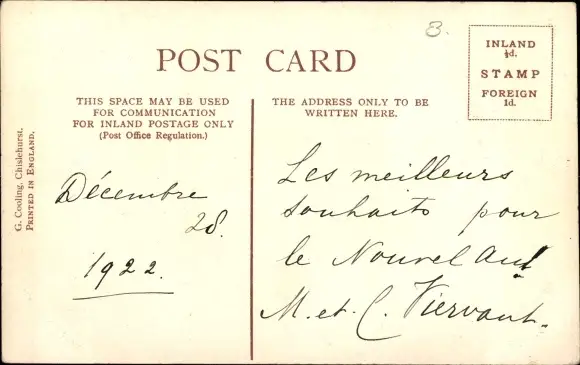 8.
POST CARD
INLAND
½d.
STAMP
FOREIGN
1d.
THIS SPACE MAY BE USED
FOR COMMUNICATION
FOR INLAND POSTAGE ONLY
(Post Office Regulation.)
THE ADDRESS ONLY TO BE
WRITTEN HERE.
G. Cooling, Chislehurst.
PRINTED IN ENGLAND.
Décembre
28.
1922.
Les meilleurs
souhaits pour
le Nouvel An!
M. et. C. Viervant.